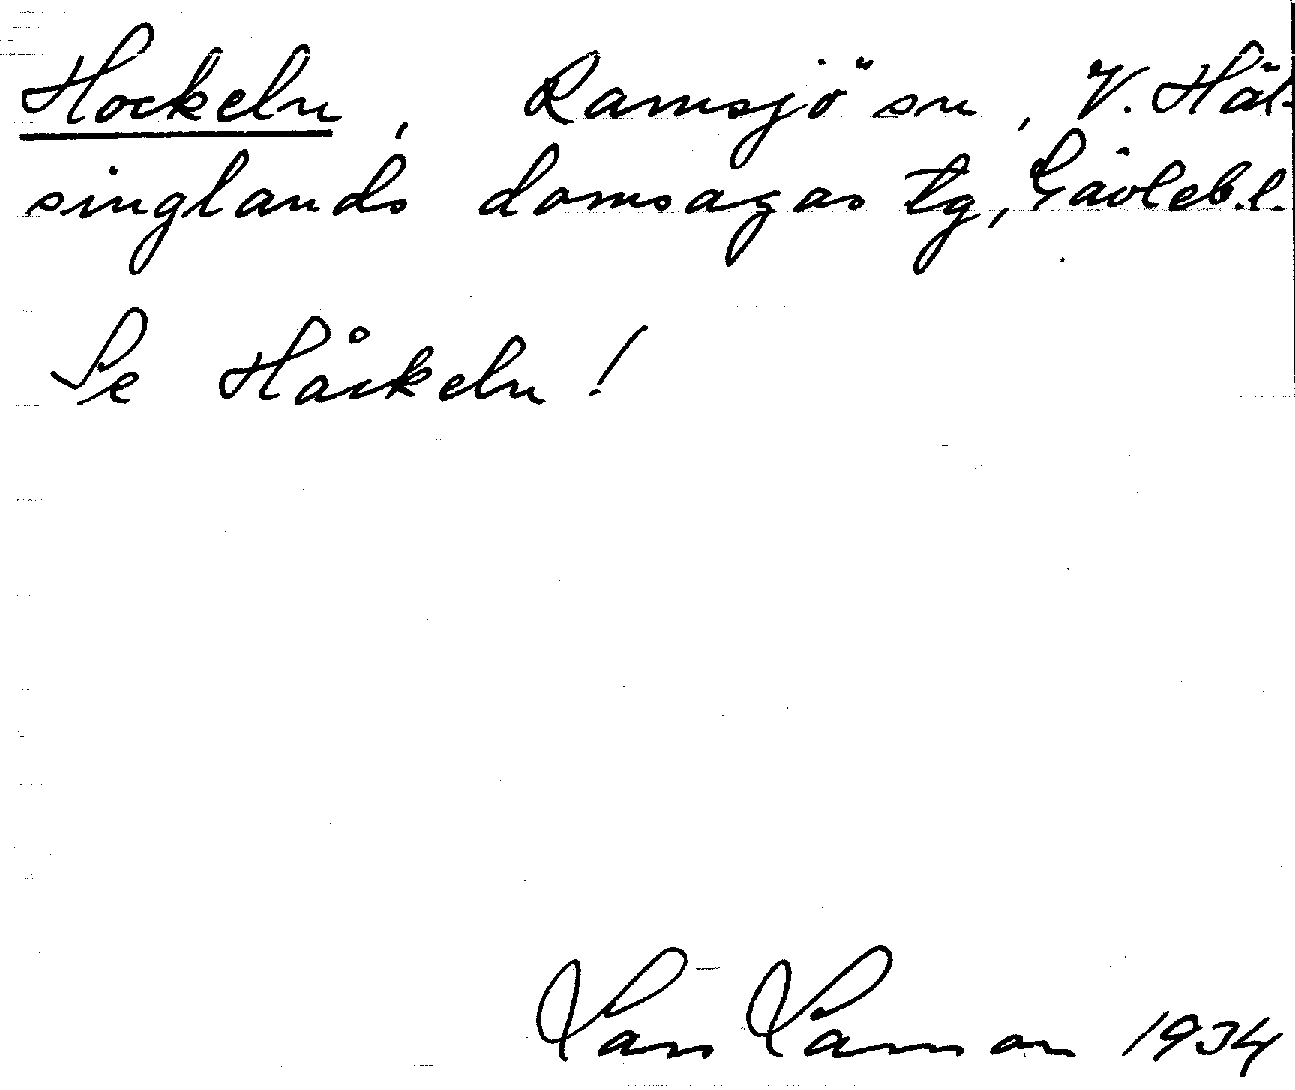 Hockeln, Ramsjö sn, V. Häl-
singlands domsagas tg, Gävleb.l.
Se Håckeln!
Lars Larsson 1934